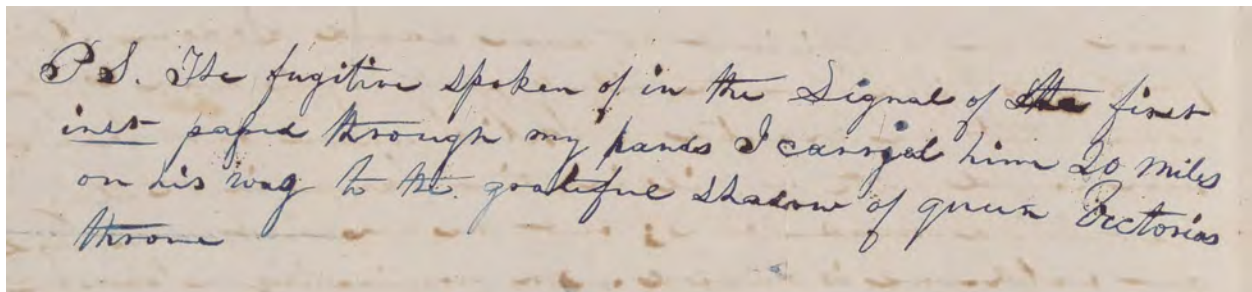 P S. The fugitive spoken of in the Signal of the first
inst passed through my hands I carried him 20 miles
on his way to the grateful shadow of queen Victorias
throne